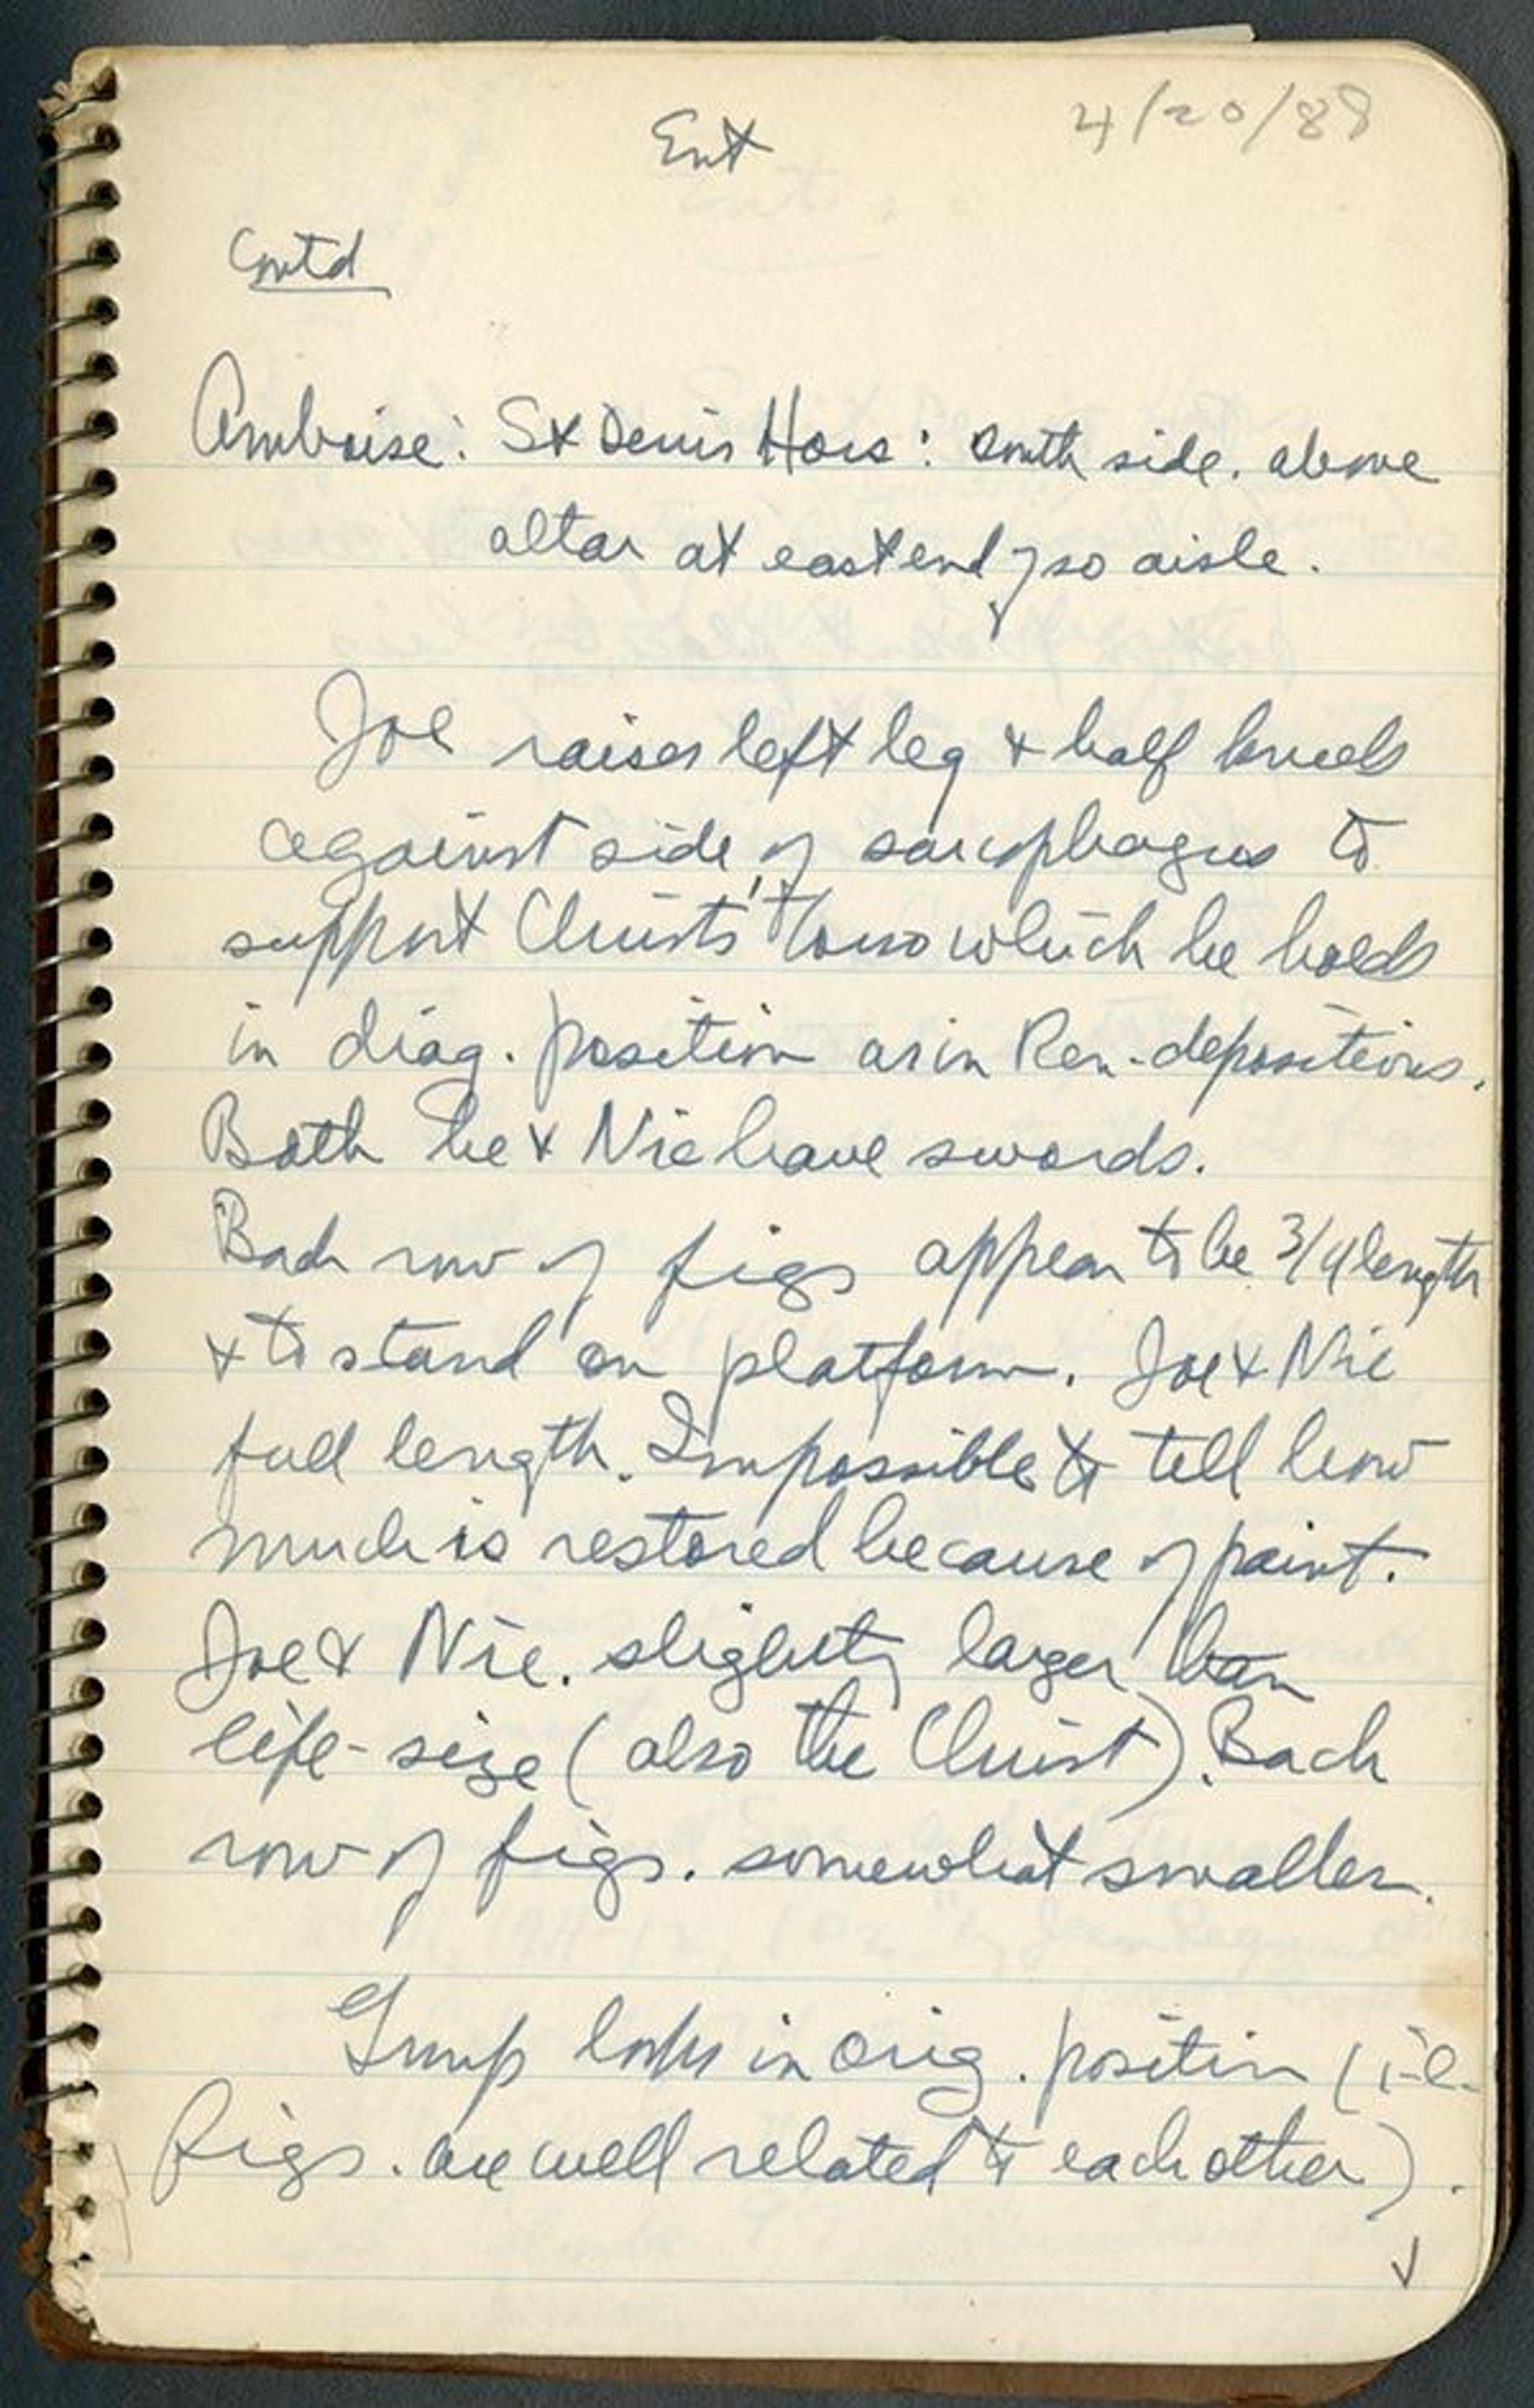 Ent
4/20/88
Contd
Amboise: St Denis Hors: south side. above
altar at east end of so aisle.
Joe raises left leg & half kneels
against side of sarcophagus to
support Christs' torso which he holds
in diag. position as in Ren. depositions.
Both he & Nic have swords.
Back row of figs appear to be 3/4 length
& to stand on platform. Joe & Nic
full length. Impossible to tell how
much is restored because of paint.
Joe & Nic. slightly larger than
life-size (also the Christ). Back
row of figs. somewhat smaller.
Group looks in orig. position (i.e.
figs. are well related to each other).